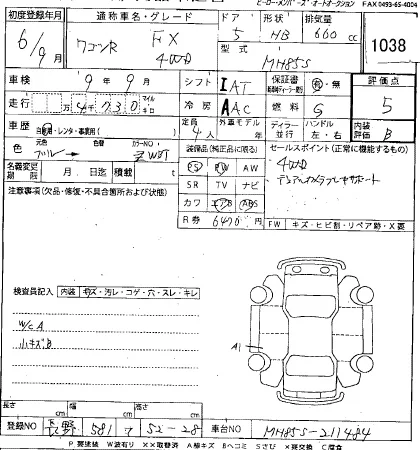 ビーロー・メンバーズ・オートオークション FAX 0493-65-4004
初度登録年月 通称車名・グレード ドア 形状 排気量
6/9月 ワゴンR FX 4WD 5 HB 660cc 1038
型式 MH85S
車検 9年 9月 シフト IAT 保証書 有・無 評価点
走行 万 4730 マイル キロ 冷房 AAC 燃料 G 5
車歴 自家用・レンタ・事業用( ) 定員 4人 外車モデル 年 ディーラー 並行 ハンドル 左・右 内装評価 B
色 元色 色替 カラーNO ZWBT
装備品(純正品に限る) セールスポイント(正常に機能するもの)
PS PW 4WD
名義変更期限 月 日迄 積載 t SR TV ナビ デュアルカメラブレーキサポート
注意事項(欠品・修復・不具合箇所および状態) カワ エアB ABS
R券 6470円 FW キズ・ヒビ割・リペア跡・X要
検査員記入 内装 キズ・汚レ・コゲ・穴・スレ・キレ
W/C A
小キズB
A1
長さ cm 幅 cm 高さ cm
登録NO 長野 581 52-28 車台NO MH85S-211484
P 要塗装 W波有り XX取替済 A線キズ Bヘコミ Sさび X要交換 C腐食